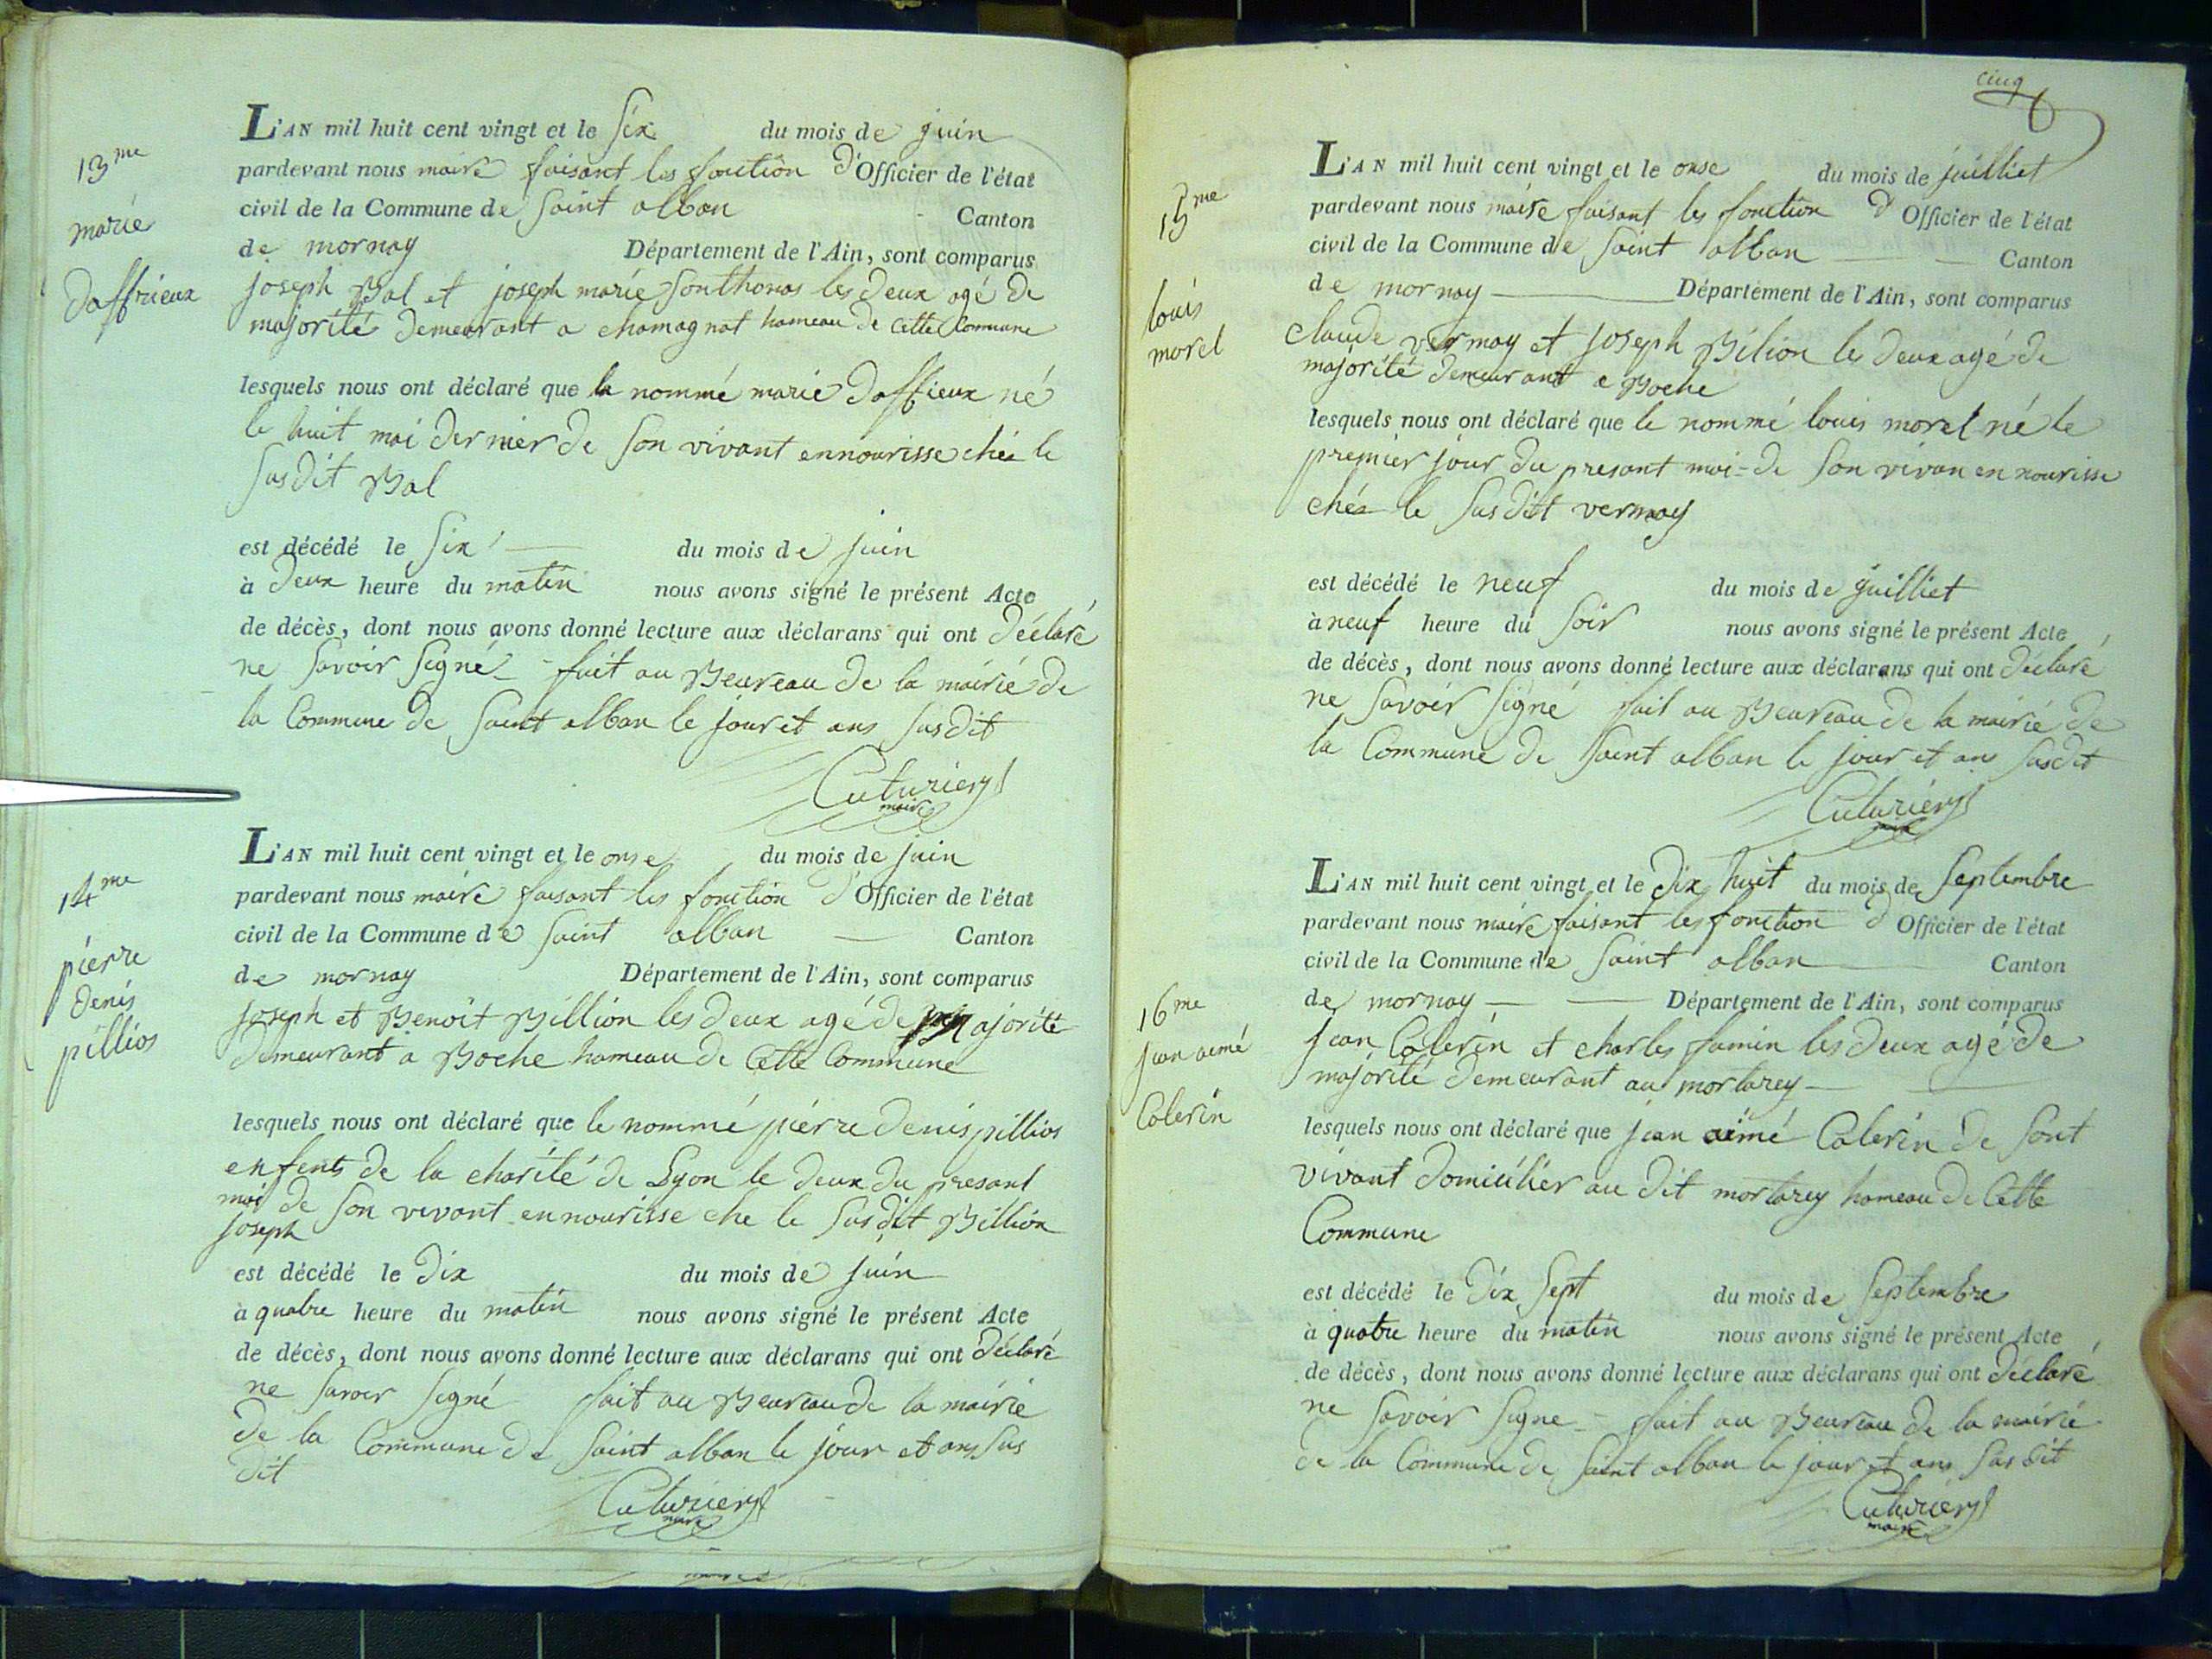 13me
marie
daffrieux
L'AN mil huit cent vingt et le six du mois de juin
pardevant nous maire faisant les fonction d'Officier de l'état
civil de la Commune de saint alban Canton
de mornay Département de l'Ain, sont comparus
joseph Bal et joseph marie Sonthonas les deux agé de
majorité demeurant a chamagnat hameau de cette Commune
lesquels nous ont déclaré que la nommé marie daffieux né
le huit mai dernier de son vivant ennourisse chéz le
susdit Bal
est décédé le six du mois de juin
à deux heure du matin nous avons signé le présent Acte
de décès, dont nous avons donné lecture aux déclarans qui ont déclaré
ne savoir signé - fait au Beureau de la mairié de
la Commune de saint alban le jour et ans susdit
Cuturiery
maire
14me
pierre
denis
pillios
L'AN mil huit cent vingt et le onse du mois de juin
pardevant nous maire faisant les fonction d'Officier de l'état
civil de la Commune de saint alban Canton
de mornay Département de l'Ain, sont comparus
joseph et Benoit Billion les deux agé de majorité
demeurant a Boche hameau de cette Commune
lesquels nous ont déclaré que le nommé pierre denis pillios
enfents de la charité de Lyon le deux du presant
moi de son vivant ennourisse che le susdit Billion
joseph
est décédé le dix du mois de juin
à quatre heure du matin nous avons signé le présent Acte
de décès, dont nous avons donné lecture aux déclarans qui ont déclaré
ne savoir signé fait au Beureau de la mairie
de la Commune de saint alban le jour et ans sus
dit
Cuturiery
maire
cinq
15me
louis
morel
L'AN mil huit cent vingt et le onse du mois de juilliet
pardevant nous maire faisant les fonction d'Officier de l'état
civil de la Commune de saint alban Canton
de mornay Département de l'Ain, sont comparus
claude vermay et joseph Bilion les deux agé de
majorité demeurant a Boche
lesquels nous ont déclaré que le nommé louis morel né le
premier jour du presant moi - de son vivan en nourisse
chéz le susdit vermay
est décédé le neuf du mois de juilliet
à neuf heure du soir nous avons signé le présent Acte
de décès, dont nous avons donné lecture aux déclarans qui ont déclaré
ne savoir signé fait au Beureau de la mairié de
la Commune de saint alban le jour et ans susdit
Cuturiery
maire
16me
jean aimé
Colerin
L'AN mil huit cent vingt et le dix huit du mois de septembre
pardevant nous maire faisant les fonction d'Officier de l'état
civil de la Commune de saint alban Canton
de mornay Département de l'Ain, sont comparus
jean Colerin et charles famin les deux agé de
majorité demeurant au mortarey
lesquels nous ont déclaré que jean aimé Colerin de sont
vivant domicilier au dit mortarey hameau de cette
Commune
est décédé le dix sept du mois de septembre
à quatre heure du matin nous avons signé le présent Acte
de décès, dont nous avons donné lecture aux déclarans qui ont déclaré
ne savoir signe - fait au Beureau de la mairié
de la Commune de saint alban le jour et ans sus dit
Cuturiery
maire